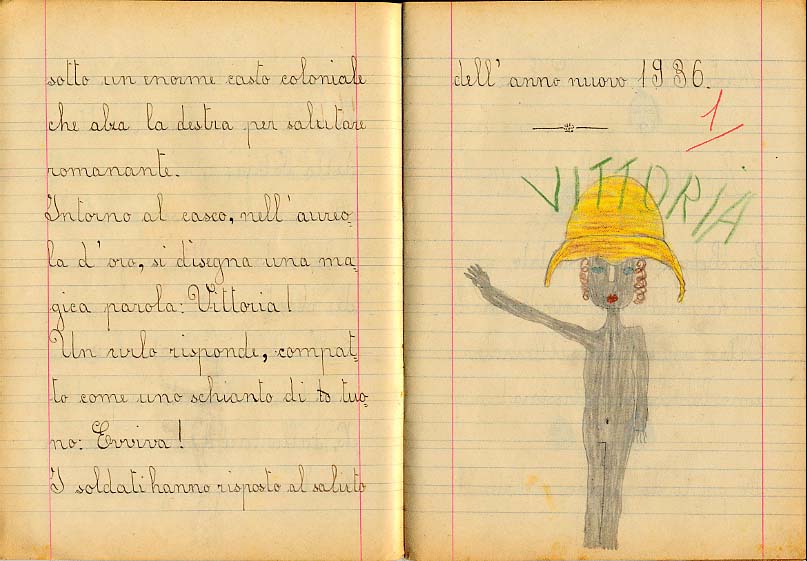 sotto un enorme casto coloniale
che alza la destra per salutare
romanante.
Intorno al casco, nell' aureo-
la d' oro, si disegna una ma-
gica parola: Vittoria!
Un urlo risponde, compat-
to come uno schianto di to tuo-
no: Evviva!
I soldati hanno risposto al saluto
dell' anno nuovo 1936.
1
VITTORIA